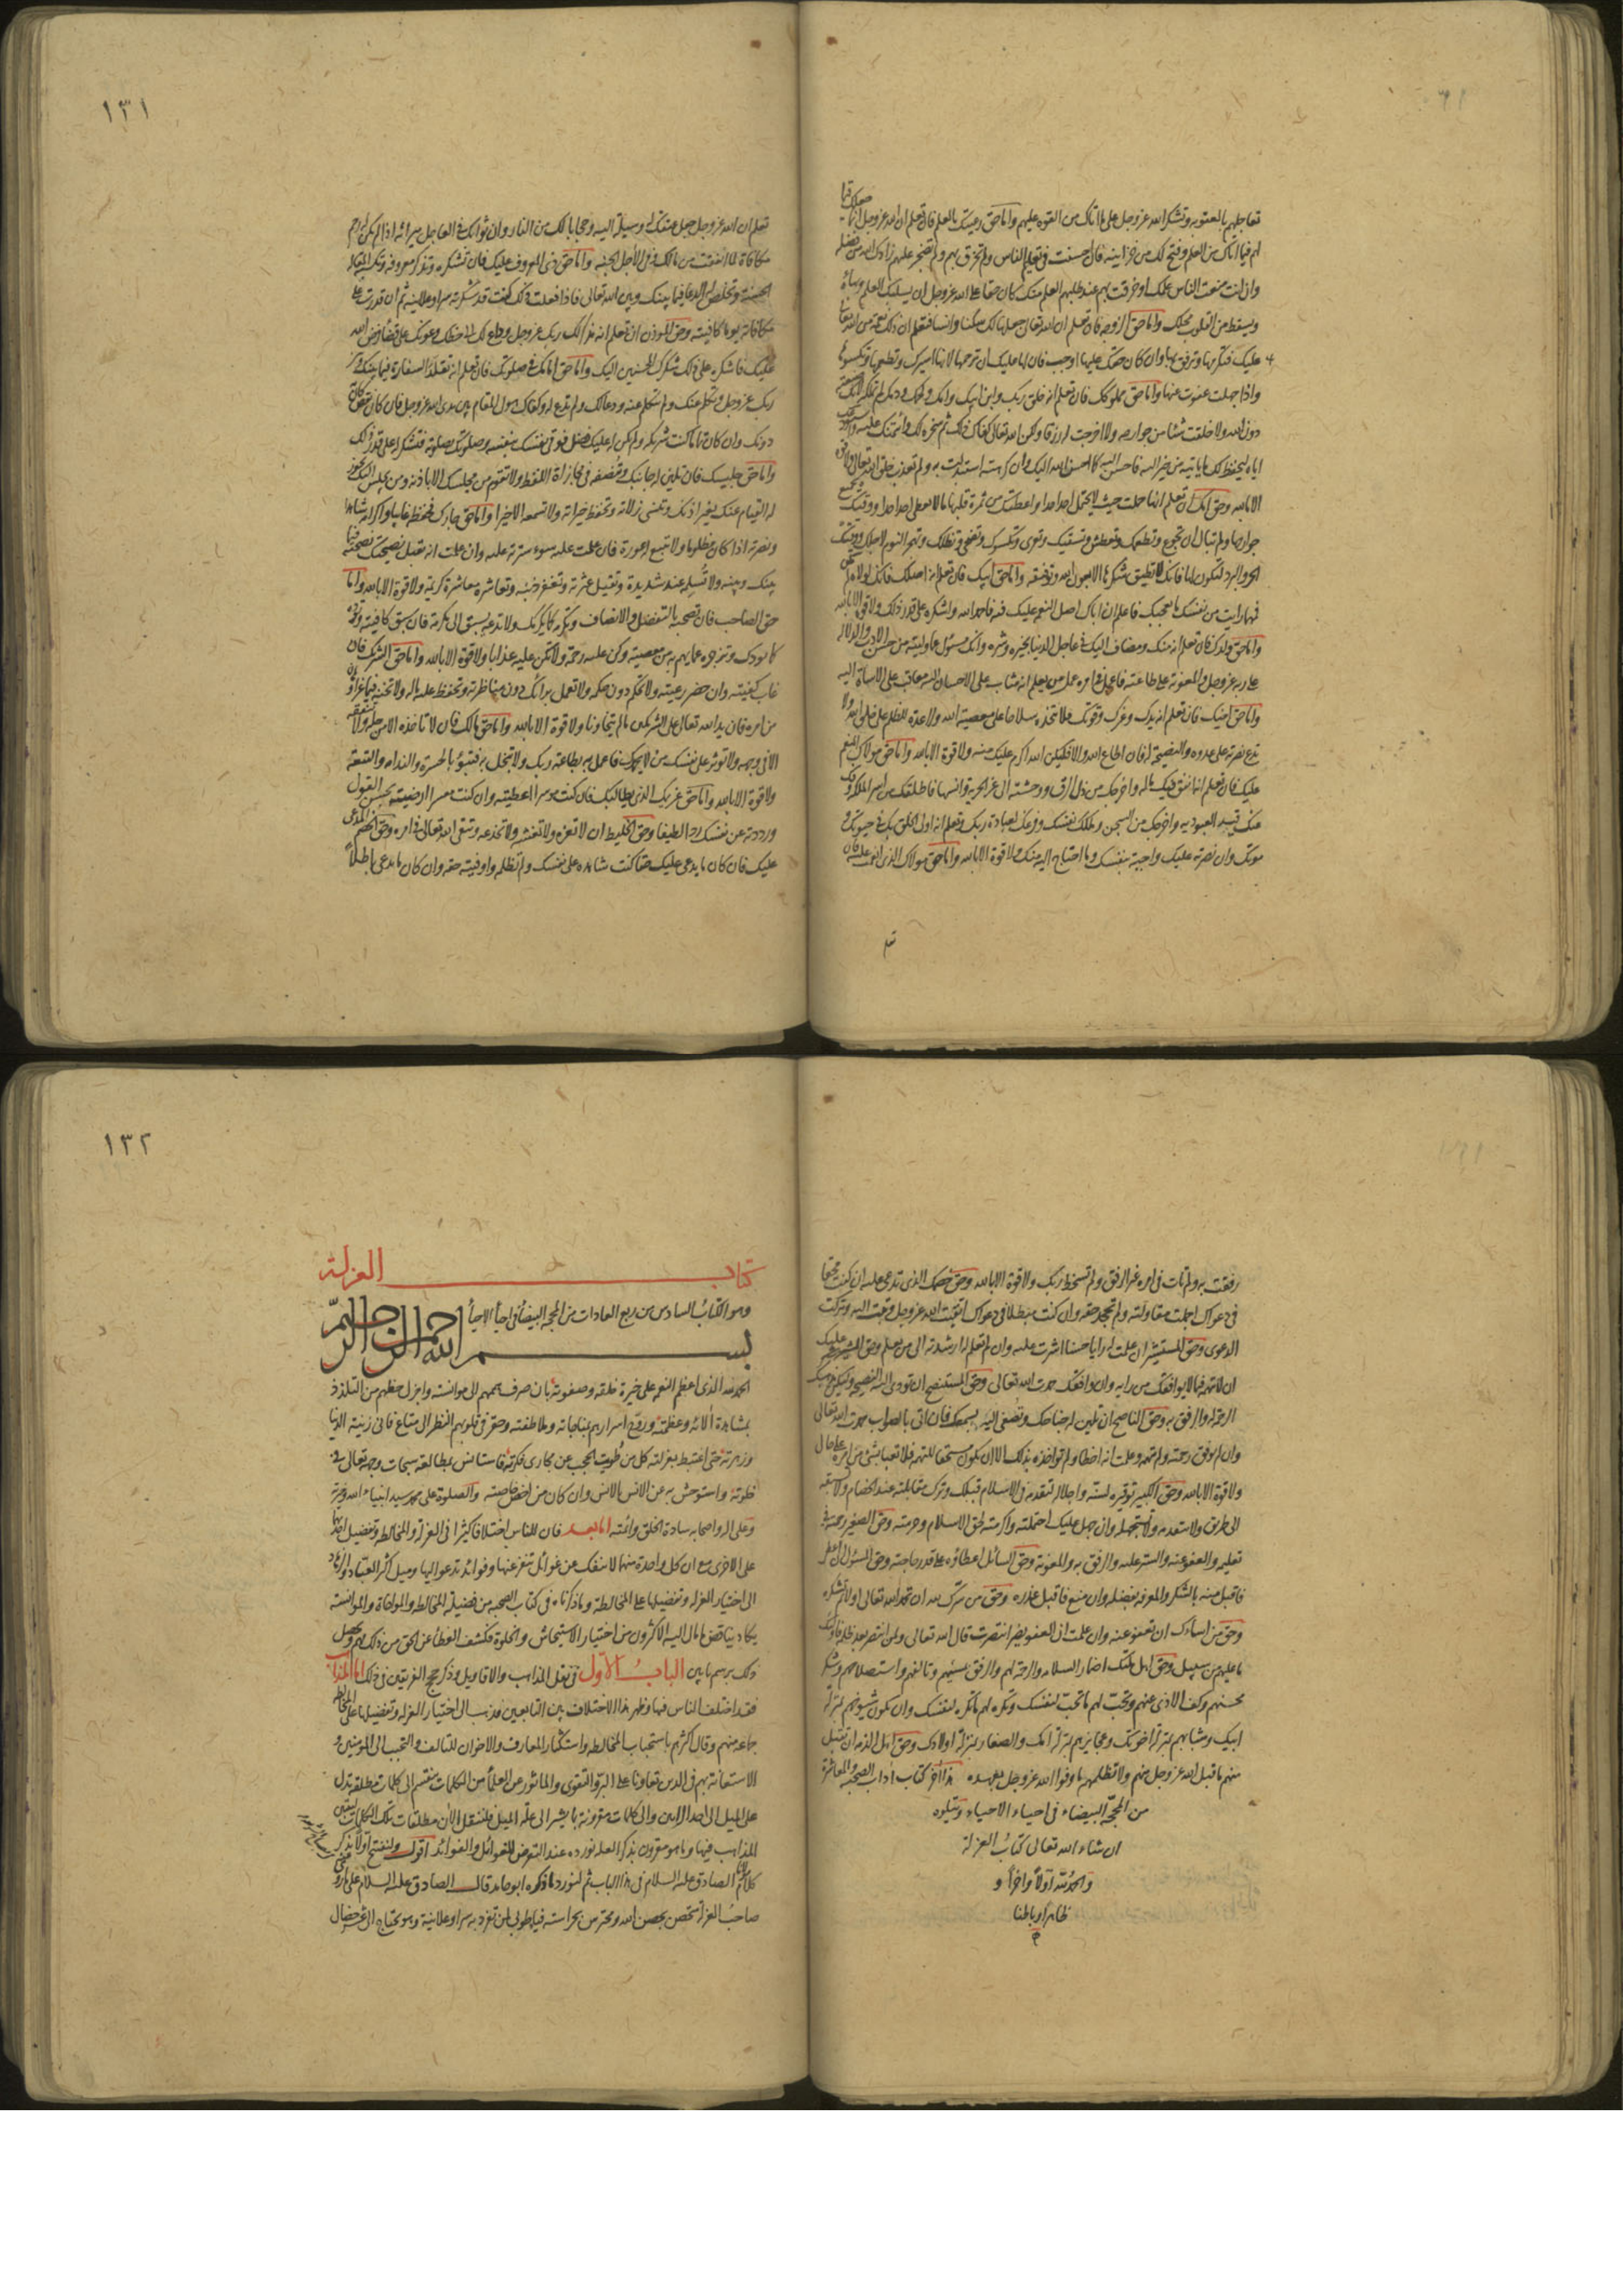 تعاجلهم بالعقوبه وتشكر الله عز وجل على ما اتاك من القوه عليهم واما حق رعيتك بالعلم فان تعلم ان الله عز وجل انما جعلك قيما
لهم فيما اتاك من العلم وفتح لك من خزاينه فان احسنت فى تعليم الناس ولم تخرق بهم ولم تضجر عليهم زادك الله من فضله
وان انت منعت الناس علمك او خرقت بهم عند طلبهم العلم منك كان حقا على الله عز وجل ان يسلبك العلم وبهاؤه
ويسقط من القلوب محلك واما حق الزوجه فان تعلم ان الله تعالى جعلها لك سكنا وانسا فتعلم ان ذلك نعمة من الله تعالى
عليك فتكرمها وترفق بها وان كان حقك عليها اوجب فان لها عليك ان ترحمها لانها اسيرك وتطعمها وتكسوها
واذا جهلت عفوت عنها واما حق مملوكك فان تعلم انه خلق ربك وابن ابيك وامك ولحمك ودمك لم تملكه لانك صنعته
دون الله ولا خلقت شئا من جوارحه ولا اخرجت له رزقا ولكن الله تعالى كفاك ذلك ثم سخره لك وائتمنك عليه واستودعك
اياه ليحفظ لك ما ياتيه من خير اليه فاحسن اليه كما احسن الله اليك وان كرهته استبدلت به ولم تعذب خلق الله تعالى ولا قوة
الا بالله وحق امك ان تعلم انها حملتك حيث لا يحتمل احد احدا واعطتك من ثمرة قلبها ما لا يعطى احد احدا ووقتك بجميع
جوارحها ولم تبال ان تجوع وتطعمك وتعطش وتسقيك وتعرى وتكسوك وتضحى وتظلك وتهجر النوم لاجلك ووقتك
الحر والبرد لتكون لها فانك لا تطيق شكرها الا بعون الله وتوفيقه واما حق ابيك فان تعلم انه اصلك فانك لولاه لم تكن
فمهما رايت من نفسك ما يعجبك فاعلم ان اباك اصل النعمه عليك فيه فاحمد الله واشكره على قدر ذلك ولا قوة الا بالله
واما حق ولدك فان تعلم انه منك ومضاف اليك فى عاجل الدنيا بخيره وشره وانك مسئول عما وليته من حسن الادب والدلاله
على ربه عز وجل والمعونه على طاعته فاعمل فى امره عمل من يعلم انه مثاب على الاحسان اليه معاقب على الاساءة اليه
واما حق اخيك فان تعلم انه يدك وعزك وقوتك فلا تتخذه سلاحا على معصية الله ولا عدة للظلم على خلق الله ولا
تدع نصرته على عدوه والنصيحة له فان اطاع الله والا فليكن الله اكرم عليك منه ولا قوة الا بالله واما حق مولاك المنعم
عليك فان تعلم انه انفق فيك ماله واخرجك من ذل الرق ووحشته الى عز الحرية وانسها فاطلقك من اسر الملكة وفك
عنك قيد العبوديه واخرجك من السجن وملكك نفسك وفرغك لعبادة ربك وتعلم انه اولى الخلق بك فى حيوتك و
موتك وان نصرته عليك واجبة بنفسك وما احتاج اليه منك ولا قوة الا بالله واما حق مولاك الذى انعمت عليه فان
تعلم
١٣١
تعلم ان الله عز وجل جعل عتقك له وسيلة اليه وحجابا لك من النار وان ثوابك فى العاجل ميراثه اذا لم يكن له رحم
مكافاة لما انفقت من مالك وفى الآجل الجنه واما حق ذى المعروف عليك فان تشكره وتذكر معروفه وتكسبه المقاله
الحسنة وتخلص له الدعا فيما بينك وبين الله تعالى فاذا فعلت ذلك كنت قد شكرته سرا وعلانيه ثم ان قدرت على
مكافاته يوما كافيته وحق المؤذن ان تعلم انه مذكر لك ربك عز وجل وداع لك الى حظك وعونك على قضاء فرض الله
عليك فاشكره على ذلك شكرك للمحسنين اليك واما حق امامك فى صلوتك فان تعلم انه تقلد السفارة فيما بينك وبين
ربك عز وجل وتكلم عنك ولم تتكلم عنه ودعا لك ولم تدع له وكفاك هول المقام بين يدى الله عز وجل فان كان نقص كان
دونك وان كان تماما كنت شريكه ولم يكن له عليك فضل فوقى نفسك بنفسه وصلوتك بصلوته فتشكر له على قدر ذلك
واما حق جليسك فان تلين له جانبك وتنصفه فى مجازاة اللفظ ولا تقوم من مجلسك الا باذنه ومن يجلس اليك يجوز
له القيام عنك بغير اذنك وتنسى زلاته وتحفظ خيراته ولا تسمعه الا خيرا واما حق جارك فحفظه غايبا واكرامه شاهدا
ونصرته اذا كان مظلوما ولا تتبع له عورة فان علمت عليه سوء سترته عليه وان علمت انه يقبل نصيحتك نصحته فيما
بينك وبينه ولا تسلمه عند شديدة وتقيل عثرته وتغفر ذنبه وتعاشره معاشرة كريمة ولا قوة الا بالله واما
حق الصاحب فان تصحبه بالتفضل والانصاف وتكرمه كما يكرمك ولا تدعه يسبق الى مكرمة فان سبق كافيته وتوده
كما يودك وتزجره عما يهم به من معصيته وكن عليه رحمة ولا تكن عليه عذابا ولا قوة الا بالله واما حق الشريك فان
غاب كفيته وان حضر رعيته ولا تحكم دون حكمه ولا تعمل برايك دون مناظرته وتحفظ عليه ماله ولا تخنه فيما عز او هان
من امره فان يد الله تعالى على الشريكين ما لم يتخاونا ولا قوة الا بالله واما حق مالك فان لا تاخذه الا من حله ولا تنفقه
الا فى وجهه ولا توثر على نفسك من لا يحمدك فاعمل به بطاعة ربك ولا تبخل به فتبوء بالحسرة والندامه والتبعة
ولا قوة الا بالله واما حق غريمك الذى يطالبك فان كنت موسرا اعطيته وان كنت معسرا ارضيته بحسن القول
ورددته عن نفسك ردا لطيفا وحق الخليط ان لا تغره ولا تغشه ولا تخدعه وتتقى الله تعالى فى امره وحق الخصم المدعى
عليك فان كان ما يدعى عليك حقا كنت شاهده على نفسك ولم تظلمه واوفيته حقه وان كان ما يدعى باطلاً
رفقت به ولم تات فى امره غير الرفق ولم تسخط ربك ولا قوة الا بالله وحق خصمك الذى تدعى عليه ان كنت محقا
فى دعواك اجملت مقاولته ولم تجحد حقه وان كنت مبطلا فى دعواك اتقيت الله عز وجل وتبت اليه وتركت
الدعوى وحق المستشير ان علمت له رايا حسنا اشرت عليه وان لم تعلم له ارشدته الى من يعلم وحق المشير عليك
ان لا تتهمه فيما لا يوافقك من رايه وان وافقك حمدت الله تعالى وحق المستنصح ان تودى اليه النصيحة وليكن مذهبك
الرحمة له والرفق به وحق الناصح ان تلين له جناحك وتصغى اليه بسمعك فان اتى بالصواب حمدت الله تعالى
وان لم يوفق رحمته ولم تتهمه وعلمت انه اخطا ولم تواخذه بذلك الا ان يكون مستحقا للتهمه فلا تعبا بشئ من امره على حال
ولا قوة الا بالله وحق الكبير توقيره لسنّه واجلاله لتقدمه فى الاسلام قبلك وترك مقابلته عند الخصام ولا تسبقه
الى طريق ولا تتقدمه ولا تستجهله وان جهل عليك احتملته واكرمته لحق الاسلام وحرمته وحق الصغير رحمته فى
تعليمه والعفو عنه والستر عليه والرفق به والمعونة وحق السائل اعطاؤه على قدر حاجته وحق المسؤل ان اعطى
فاقبل منه بالشكر والمعرفه بفضله وان منع فاقبل عذره وحق من سرّك لله ان تحمد الله تعالى اولا ثم تشكره
وحق من اساءك ان تعفو عنه وان علمت ان العفو يضر انتصرت قال الله تعالى ولمن انتصر بعد ظلمه فاولئك
ما عليهم من سبيل وحق اهل ملتك اضمار السلامه والرحمة لهم والرفق بمسيئهم وتالفهم واستصلاحهم وشكر
محسنهم وكف الاذى عنهم وتحب لهم ما تحب لنفسك وتكره لهم ما تكره لنفسك وان يكون شيوخهم بمنزلة
ابيك وشبابهم بمنزلة اخوتك وعجايزهم بمنزلة امك والصغار بمنزلة اولادك وحق اهل الذمه ان تقبل
منهم ما قبل الله عز وجل منهم ولا تظلمهم ما وفوا لله عز وجل بعهده هذا آخر كتاب آداب الصحبه والمعاشرة
من المحجّة البيضاء فى احياء الاحياء ويتلوه
ان شاء الله تعالى كتاب العزلة
والحمد لله اولاً واخراً و
ظاهرا وباطنا
م
١٣٢
كتاب العزلة
وهو الكتاب السادس من ربع العادات من المحجة البيضاء فى احياء الاحياء
بسم الله الرحمن الرحيم
الحمد لله الذى اعظم النعمه على خيرة خلقه وصفوته بان صرف هممهم الى موانسته واجزل حظهم من التلذذ
بمشاهدة آلائه وعظمته وروّح اسرارهم بمناجاته وملاطفته وحقر فى قلوبهم النظر الى متاع فانى زينة الدنيا
وزهرتها حتى اغتبط بعزلته كل من طويت الحجب عن مجارى فكرته فاستانس بمطالعة سبحات وجهه تعالى فى
خلوته واستوحش به عن الانس بالانس وان كان من اخص خاصته والصلوة على محمد سيد انبياء الله وخيرته
وعلى اله واصحابه سادة الخلق وائمته اما بعد فان للناس اختلافا كثيرا فى العزلة والمخالطه وتفضيل احديهما
على الاخرى مع ان كل واحدة منهما لا تنفك عن غوائل تنفر عنها وفوائد تدعو اليها وميل اكثر العباد والزهاد
الى اختيار العزلة وتفضيلها على المخالطة وما ذكرناه فى كتاب الصحبه من فضيلة المخالطه والمواخاة والموانسة
يكاد يناقض ما مال اليه الاكثرون من اختيار الاستيحاش والخلوة فكشف الغطاء عن الحق من ذلك مهم ويحصل
ذلك برسم بابين الباب الاول فى نقل المذاهب والاقاويل وذكر حجج الفريقين فى ذلك اما المذاهب
فقد اختلف الناس فيها وظهر هذا الاختلاف بين التابعين فذهب الى اختيار العزلة وتفضيلها على المخالطة
جماعه منهم وقال اكثرهم باستحباب المخالطه واستكثار المعارف والاخوان للتالف والتحبب الى المومنين و
الاستعانة بهم فى الدين تعاونا على البر والتقوى والماثور عن العلماء من الكلمات ينقسم الى كلمات مطلقه تدل
على الميل الى احد الرايين والى كلمات مقرونة بما يشير الى علة الميل فلننقل الآن مطلقات تلك الكلمات لتبين
المذاهب فيها وما هو مقرون بذكر العلة نورده عند التعرض للغوائل والفوائد اقول ولنفتتح اولا بذكر
كلام الصادق عليه السلام فى هذا الباب ثم لنورد ما ذكره ابو حامد قال الصادق عليه السلام على ما روى
صاحب العزلة متحصن بحصن الله ومحترس بحراسته فياطوبى لمن تفرد به سرا وعلانية وهو يحتاج الى عشر خصال